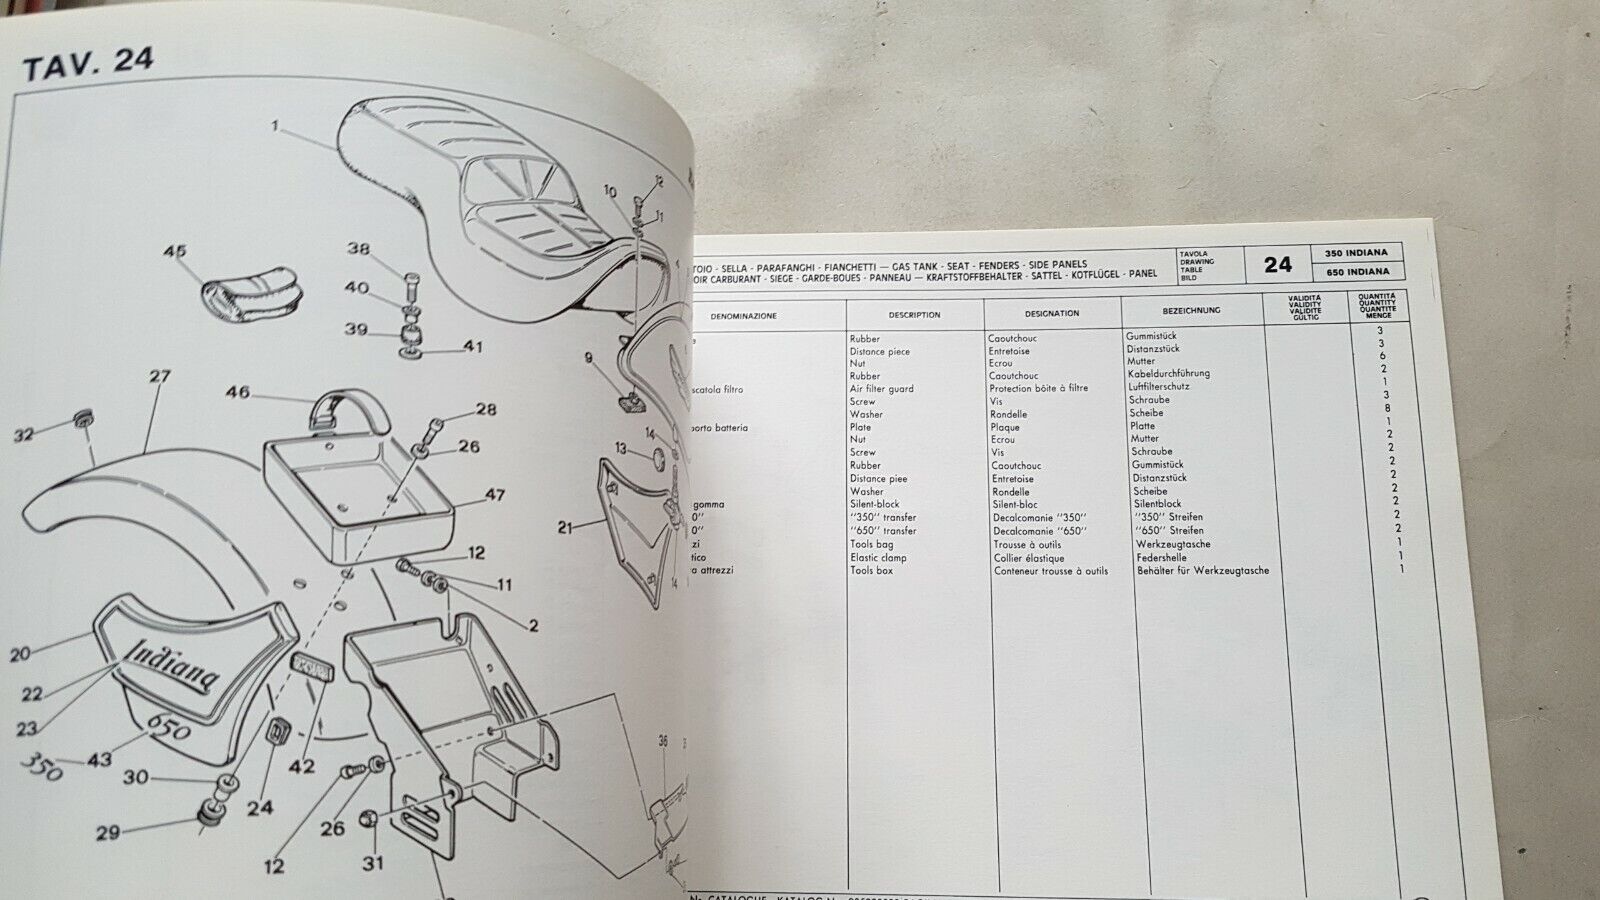 TAV. 24
1
10
12
11
45
38
40
39
41
9
27
46
28
26
32
13
14
47
21
12
11
2
14
20
Indiana
22
23
650
43
350
30
24
42
29
12
26
31
36
TOIO - SELLA - PARAFANGHI - FIANCHETTI — GAS TANK - SEAT - FENDERS - SIDE PANELS
OIR CARBURANT - SIEGE - GARDE-BOUES - PANNEAU — KRAFTSTOFFBEHALTER - SATTEL - KOTFLÜGEL - PANEL
TAVOLA
DRAWING
TABLE
BILD
24
350 INDIANA
650 INDIANA
DENOMINAZIONE DESCRIPTION DESIGNATION BEZEICHNUNG
VALIDITA
VALIDITY
VALIDITE
GÜLTIG
QUANTITA
QUANTITY
QUANTITE
MENGE
Rubber Caoutchouc Gummistück 3
Distance piece Entretoise Distanzstück 3
Nut Ecrou Mutter 6
Rubber Caoutchouc Kabeldurchführung 2
scatola filtro Air filter guard Protection bôite à filtre Luftfilterschutz 1
Screw Vis Schraube 3
Washer Rondelle Scheibe 8
porto batteria Plate Plaque Platte 1
Nut Ecrou Mutter 2
Screw Vis Schraube 2
Rubber Caoutchouc Gummistück 2
Distance piee Entretoise Distanzstück 2
Washer Rondelle Scheibe 2
gomma Silent-block Silent-bloc Silentblock 2
0" "350" transfer Decalcomanie "350" "350" Streifen 2
0" "650" transfer Decalcomanie "650" "650" Streifen 2
zi Tools bag Trousse à outils Werkzeugtasche 1
tico Elastic clamp Collier élastique Federshelle 1
a attrezzi Tools box Conteneur trousse à outils Behälter für Werkzeugtasche 1